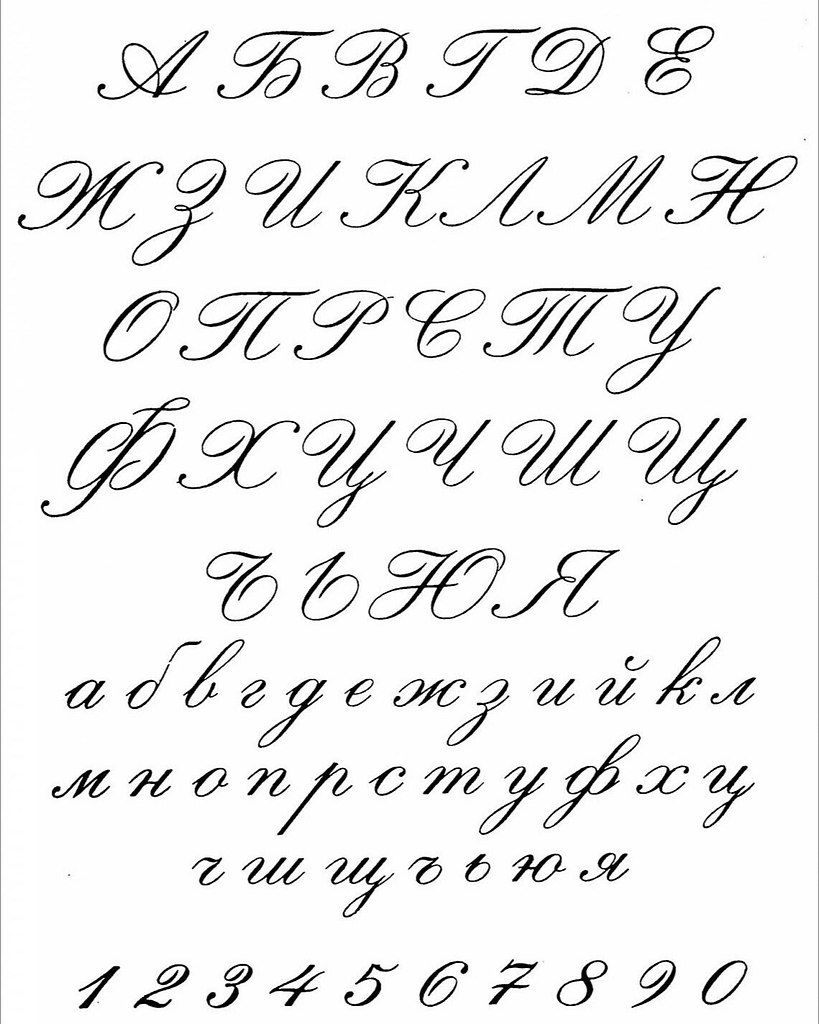 А Б В Г Д Е
Ж З И К Л М Н
О П Р С Т У
Ф Х Ц Ч Ш Щ
Ъ Ь Ю Я
а б в г д е ж з и й к л
м н о п р с т у ф х ц
ч ш щ ъ ь ю я
1 2 3 4 5 6 7 8 9 0